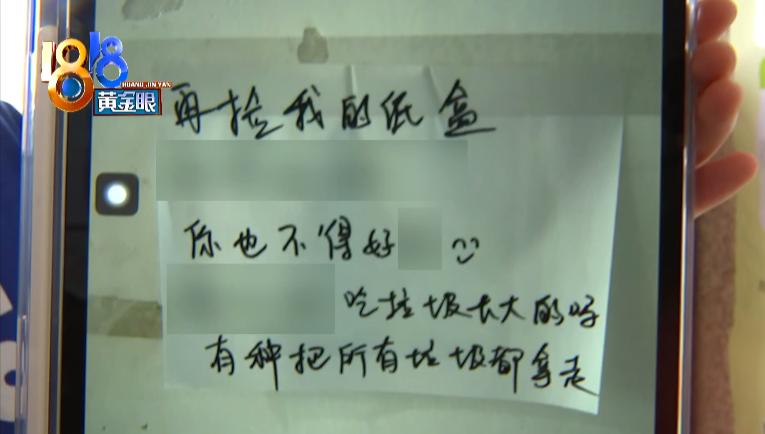 1818
HUANG JIN YAN
黄金眼
再捡我的纸盒
你也不得好
吃垃圾长大的呀
有种把所有垃圾都拿走